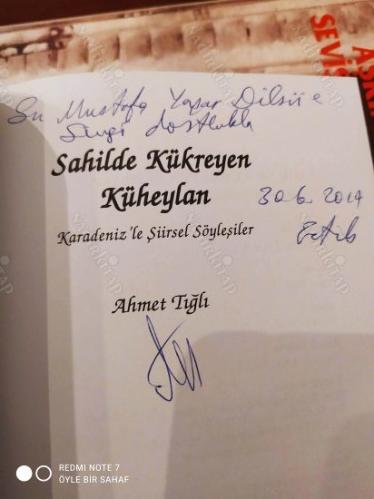 Sn Mustafa Yaşar Dilsiz'e
Sevgi dostlukla
Sahilde Kükreyen
Küheylan
30.6.2019
Karadeniz'le Şiirsel Söyleşiler
Ahmet Tığlı
AŞKI
SEVİŞ
REDMI NOTE 7
ÖYLE BİR SAHAF